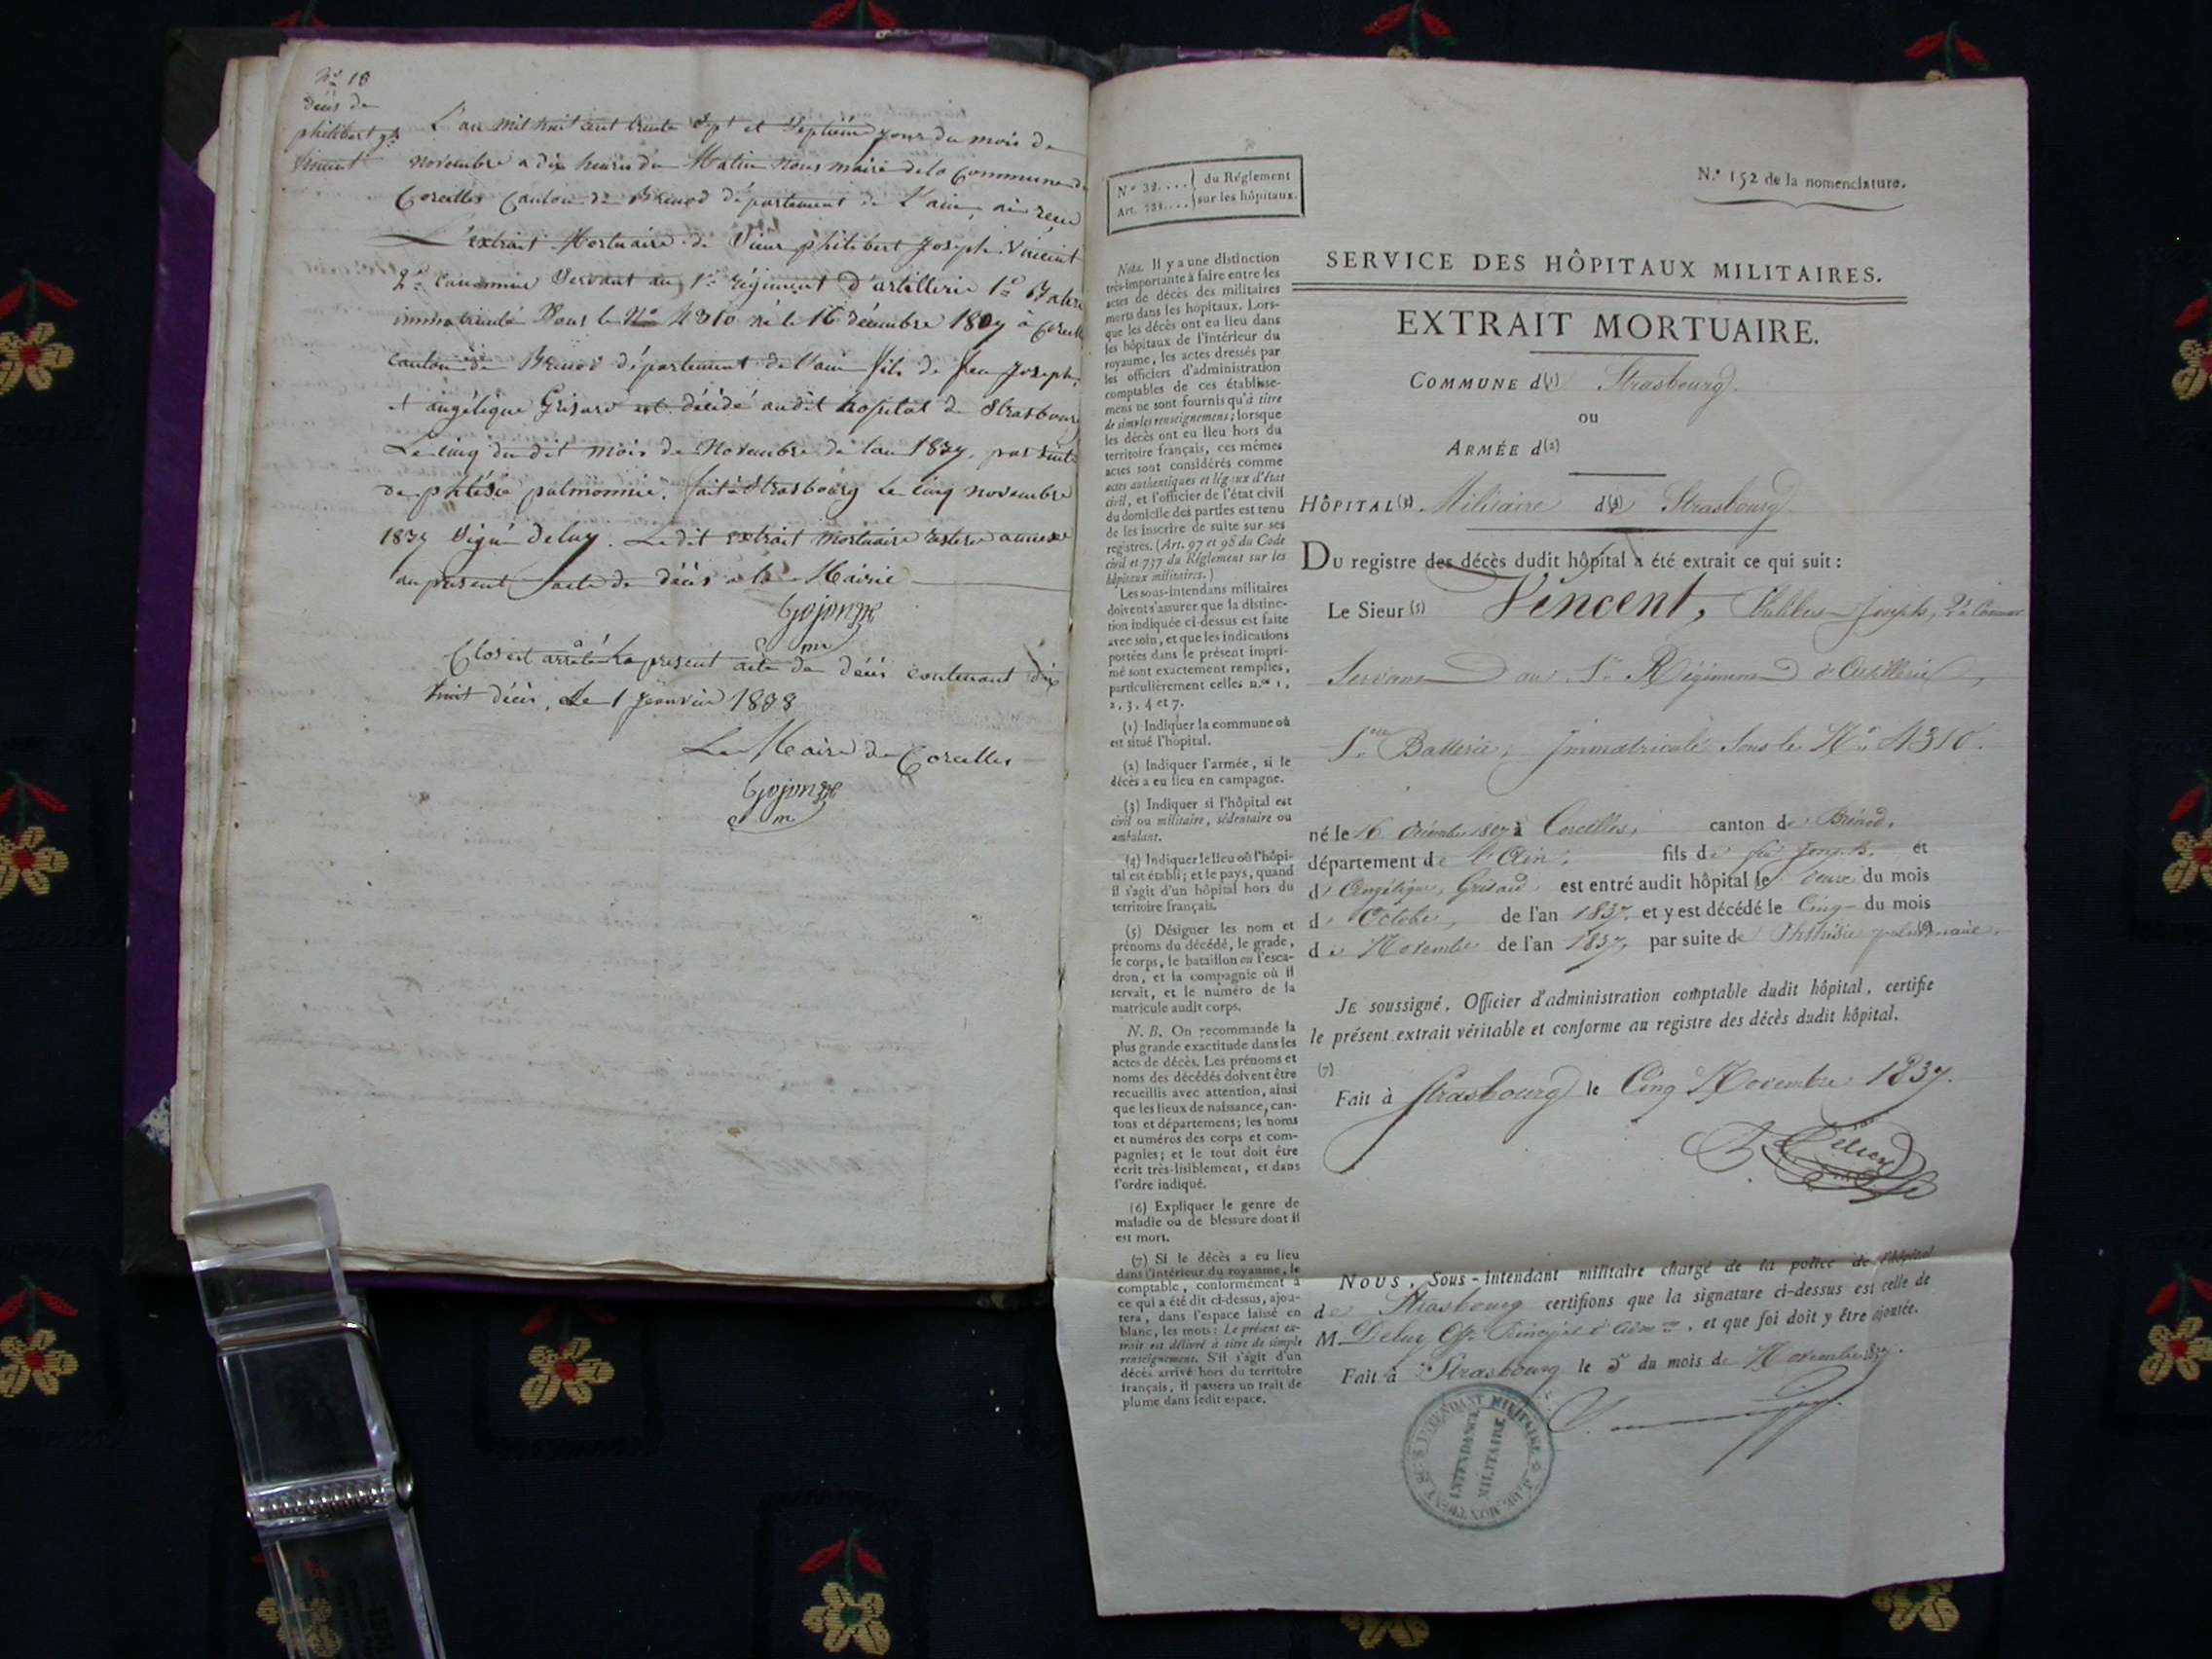 No 18
décès de
philibert jh
Vincent
L'an mil huit cent trente Sept et Septième jour du mois de
novembre a dix heures du Matin nous maire de la Commune de
Corcelles Canton de Brenod département de L'ain, ai reçu
L'extrait Mortuaire de Sieur philibert Joseph Vincent
2e Canonnier Servant au 1er régiment d'artillerie 1re Baterie
immatriculé Sous le No 4310 né le 16 décembre 1807 à Corcelles
canton de Brenod département de l'ain fils de feu Joseph,
et angélique Grisard est décédé audit hopital de Strasbourg
Le cinq du dit mois de Novembre de l'an 1837, par suite
de phtisie pulmonaire. fait à Strasbourg Le cinq novembre
1837 Signé Deluy. Le dit extrait mortuaire restera annexé
au présent acte de décès a la Mairie
Gojon
Clos et arrêté Le présent acte de décès contenant dix
huit décès, Le 1 Janvier 1838
Le Maire de Corcelles
Gojon
N.º 32.... Art. 731.... du Réglement sur les hôpitaux.
Nota. Il y a une distinction
très-importante à faire entre les
actes de décès des militaires
morts dans les hôpitaux. Lors-
que les décès ont eu lieu dans
les hôpitaux de l'intérieur du
royaume, les actes dressés par
les officiers d'administration
comptables de ces établisse-
mens ne sont fournis qu'à titre
de simples renseignemens; lorsque
les décès ont eu lieu hors du
territoire français, ces mêmes
actes sont considérés comme
actes authentiques et légaux d'état
civil, et l'officier de l'état civil
du domicile des parties est tenu
de les inscrire de suite sur ses
registres. (Art. 97 et 98 du Code
civil et 737 du Réglement sur les
hôpitaux militaires.)
Les sous-intendans militaires
doivent s'assurer que la distinc-
tion indiquée ci-dessus est faite
avec soin, et que les indications
portées dans le présent impri-
mé sont exactement remplies,
particulièrement celles n.os 1,
2, 3, 4 et 7.
(1) Indiquer la commune où
est situé l'hôpital.
(2) Indiquer l'armée, si le
décès a eu lieu en campagne.
(3) Indiquer si l'hôpital est
civil ou militaire, sédentaire ou
ambulant.
(4) Indiquer le lieu où l'hôpi-
tal est établi; et le pays, quand
il s'agit d'un hôpital hors du
territoire français.
(5) Désigner les nom et
prénoms du décédé, le grade,
le corps, le bataillon ou l'esca-
dron, et la compagnie où il
servait, et le numéro de la
matricule audit corps.
N. B. On recommande la
plus grande exactitude dans les
actes de décès. Les prénoms et
noms des décédés doivent être
recueillis avec attention, ainsi
que les lieux de naissance, can-
tons et départemens; les noms
et numéros des corps et com-
pagnies; et le tout doit être
écrit très-lisiblement, et dans
l'ordre indiqué.
(6) Expliquer le genre de
maladie ou de blessure dont il
est mort.
(7) Si le décès a eu lieu
dans l'intérieur du royaume, le
comptable, conformément à
ce qui a été dit ci-dessus, ajou-
tera, dans l'espace laissé en
blanc, les mots: Le présent ex-
trait est délivré à titre de simple
renseignement. S'il s'agit d'un
décès arrivé hors du territoire
français, il passera un trait de
plume dans ledit espace.
N.º 152 de la nomenclature.
SERVICE DES HÔPITAUX MILITAIRES.
EXTRAIT MORTUAIRE.
COMMUNE d(1) Strasbourg.
ou
ARMÉE d(2)
HÔPITAL(3) Militaire d(4) Strasbourg
DU registre des décès dudit hôpital a été extrait ce qui suit :
Le Sieur (5) Vincent, Philibert Joseph, 2e Canonnier
Servant au 1er Régiment d'Artillerie,
1ère Batterie, Immatriculé Sous le No 4310.
né le 16 Décembre 1807 à Corcelles, canton de Brénod,
département de l'Ain. fils de feu Joseph, et
d'Angélique Grisard, est entré audit hôpital le douze du mois
d'Octobre, de l'an 1837, et y est décédé le Cinq du mois
de Novembre de l'an 1837, par suite de Phthisie pulmonaire.
JE soussigné, Officier d'administration comptable dudit hôpital, certifie
le présent extrait véritable et conforme au registre des décès dudit hôpital.
(7)
Fait à Strasbourg le Cinq Novembre 1837.
NOUS, Sous-Intendant militaire chargé de la police de l'hôpital
de Strasbourg certifions que la signature ci-dessus est celle de
M. Deluy Off. Principal d'Adon, et que foi doit y être ajoutée.
Fait à Strasbourg le 5 du mois de Novembre 1837.
INTENDANCE
MILITAIRE